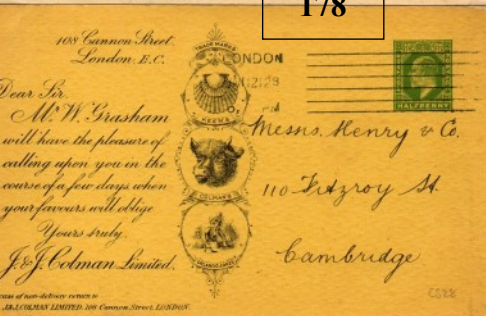 178
108 Cannon Street,
London, E.C.
Dear Sir,
Mr. W. Grasham
will have the pleasure of
calling upon you in the
course of a few days when
your favours will oblige
Yours truly,
J. & J. Colman Limited.
In case of non-delivery return to
J. & J. COLMAN LIMITED, 108 Cannon Street, LONDON.
TRADE MARKS
KEEN'S
COLMAN'S
LONDON
PM
HALFPENNY
Messrs. Henry & Co.
110 Fitzroy St
Cambridge
CS28